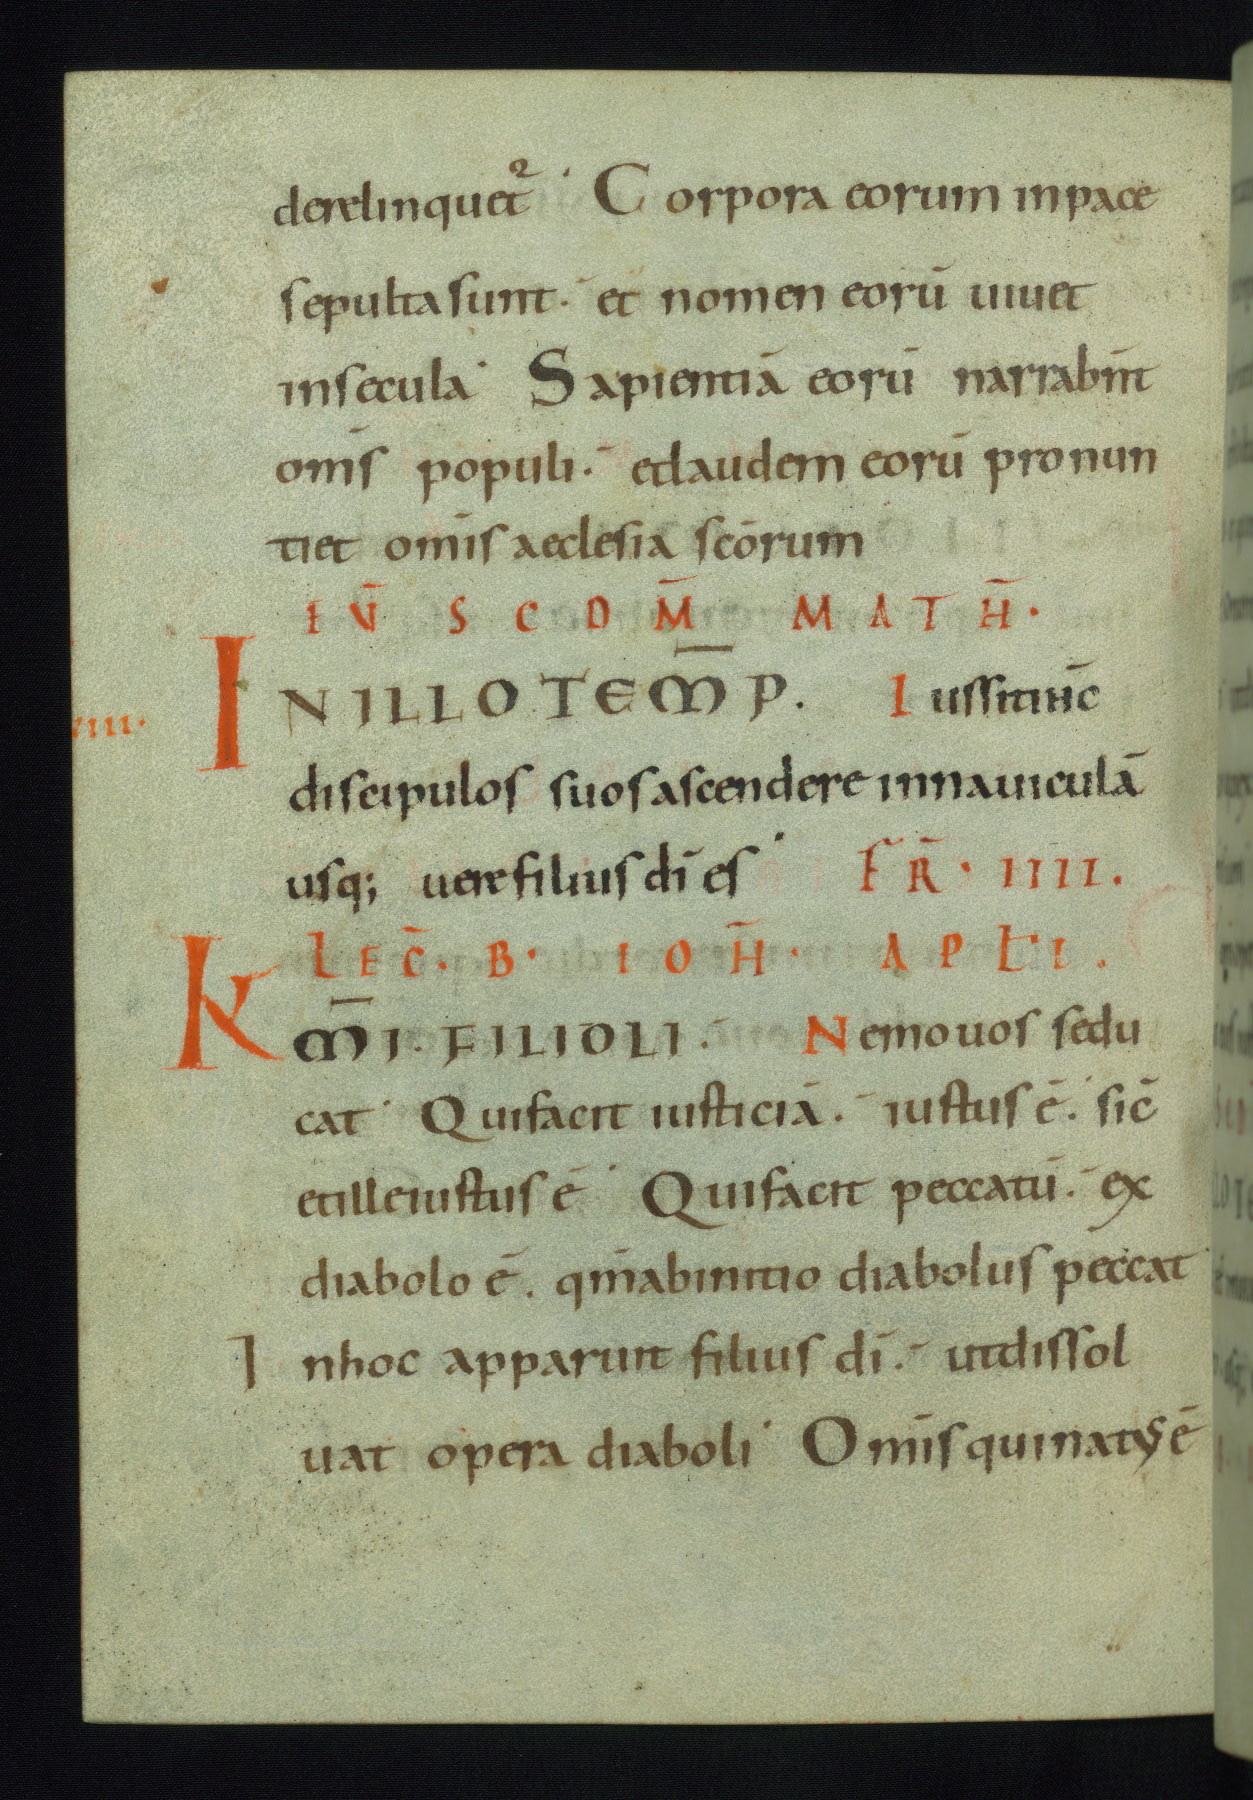 derelinquet᷑· Corpora eorum inpace
sepulta sunt·̄ et nomen eorū uiuet
insecula· Sapientiā eorū narrabn̄t
om̄s populi·̄ etlaudem eorū pronun
tiet om̄is aeclesia scōrum
EV̄ SCDM̄ MATH̄·
INILLOTEM̄P. Iussit ih̄c
discipulos suos ascendere innauiculā
usq; uere filius dī es· FR̄· IIII.
LEC̄· B· IOH̄· APLI.
KM̄I· FILIOLI·̄ Nemo uos sedu
cat· Qui facit iusticiā·̄ iustus ē· sic̄
etille iustus ē· Qui facit peccatū·̄ ex
diabolo ē. qm̄ abinitio diabolus peccat·
Inhoc apparuit filius dī·̄ utdissol
uat opera diaboli· Om̄is qui natꝰ ē